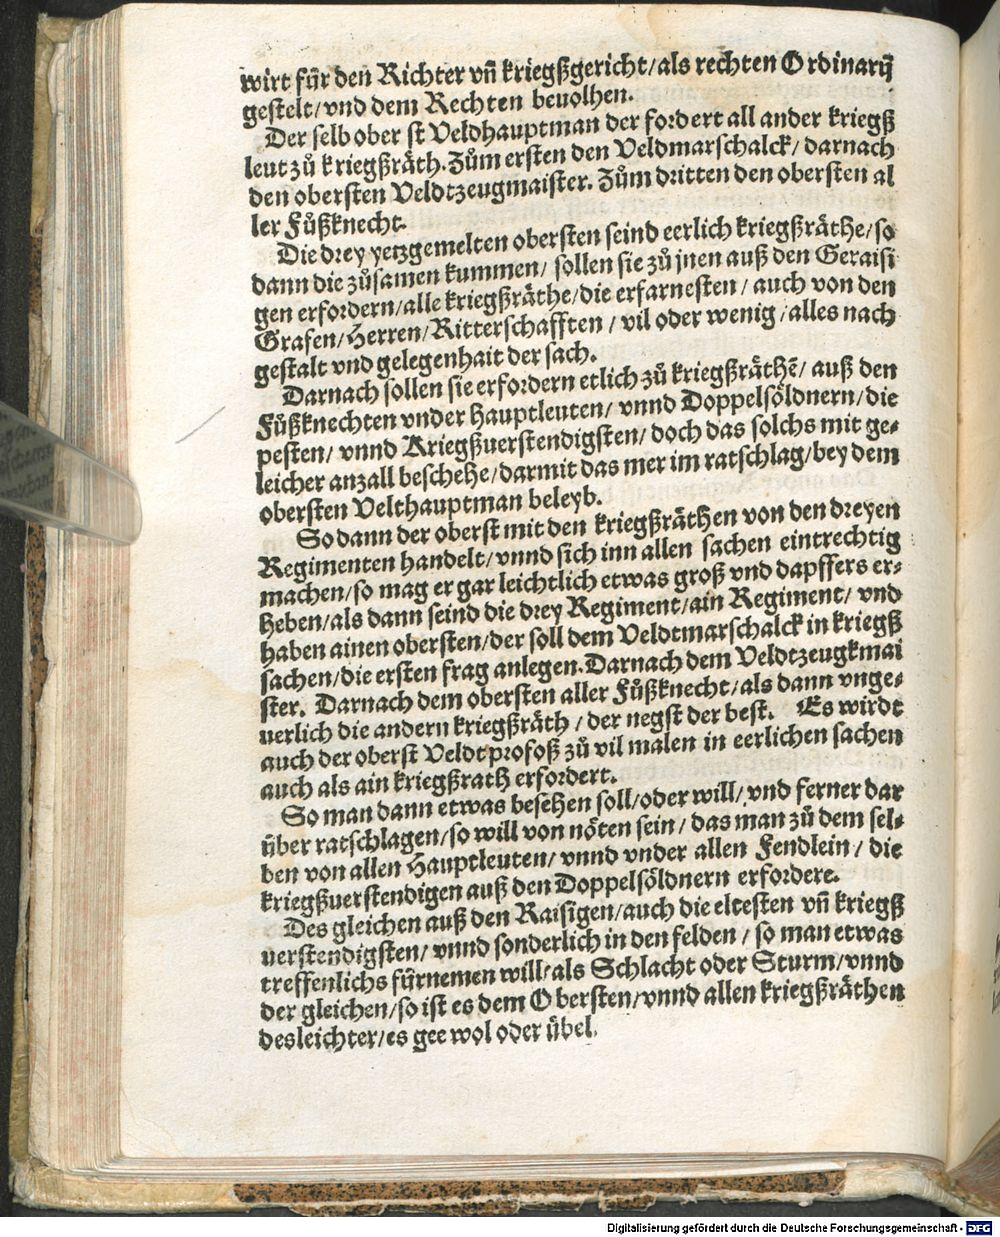 wirt für den Richter vñ kriegßgericht/als rechten Ordinarij
gestelt/vnd dem Rechten beuolhen.
Der selb ober st Veldhauptman der fordert all ander kriegß
leut zů kriegßräth. Zům ersten den Veldmarschalck/ darnach
den obersten Veldtzeugmaister. Zům dritten den obersten al
ler Fůßknecht.
Die drey yetzgemelten obersten seind eerlich kriegßräthe/so
dann die zůsamen kummen/ sollen sie zů jnen auß den Geraisi
gen erfordern/alle kriegßräthe/die erfarnesten/ auch von den
Grafen/Herren/Ritterschafften/ vil oder wenig/alles nach
gestalt vnd gelegenhait der sach.
Darnach sollen sie erfordern etlich zů kriegßräthē/ auß den
Fůßknechten vnder Hauptleuten/ vnnd Doppelsöldnern/die
pesten/ vnnd Kriegßuerstendigsten/ doch das solchs mit ge-
leicher anzall beschehe/darmit das mer im ratschlag/bey dem
obersten Velthauptman beleyb.
So dann der oberst mit den kriegßräthen von den dreyen
Regimenten handelt/vnnd sich inn allen sachen eintrechtig
machen/so mag er gar leichtlich etwas groß vnd dapffers er-
heben/als dann seind die drey Regiment/ain Regiment/ vnd
haben ainen obersten/der soll dem Veldtmarschalck in kriegß
sachen/die ersten frag anlegen. Darnach dem Veldtzeugkmai
ster. Darnach dem obersten aller Fůßknecht/als dann vnge-
uerlich die andern kriegßräth/ der negst der best. Es wirdt
auch der oberst Veldt profoß zů vil malen in eerlichen sachen
auch als ain kriegßrath erfordert.
So man dann etwas besehen soll/oder will/ vnd ferner dar
über ratschlagen/so will von nöten sein/ das man zů dem sel-
ben von allen Hauptleuten/ vnnd vnder allen Fendlein/ die
kriegßuerstendigen auß den Doppelsöldnern erfordere.
Des gleichen auß den Raisigen/auch die eltesten vñ kriegß
uerstendigsten/ vnnd sonderlich in den felden/ so man etwas
treffenlichs fürnemen will/als Schlacht oder Sturm/vnnd
der gleichen/so ist es dem Obersten/vnnd allen kriegßräthen
desleichter/es gee wol oder übel.
Digitalisierung gefördert durch die Deutsche Forschungsgemeinschaft - DFG